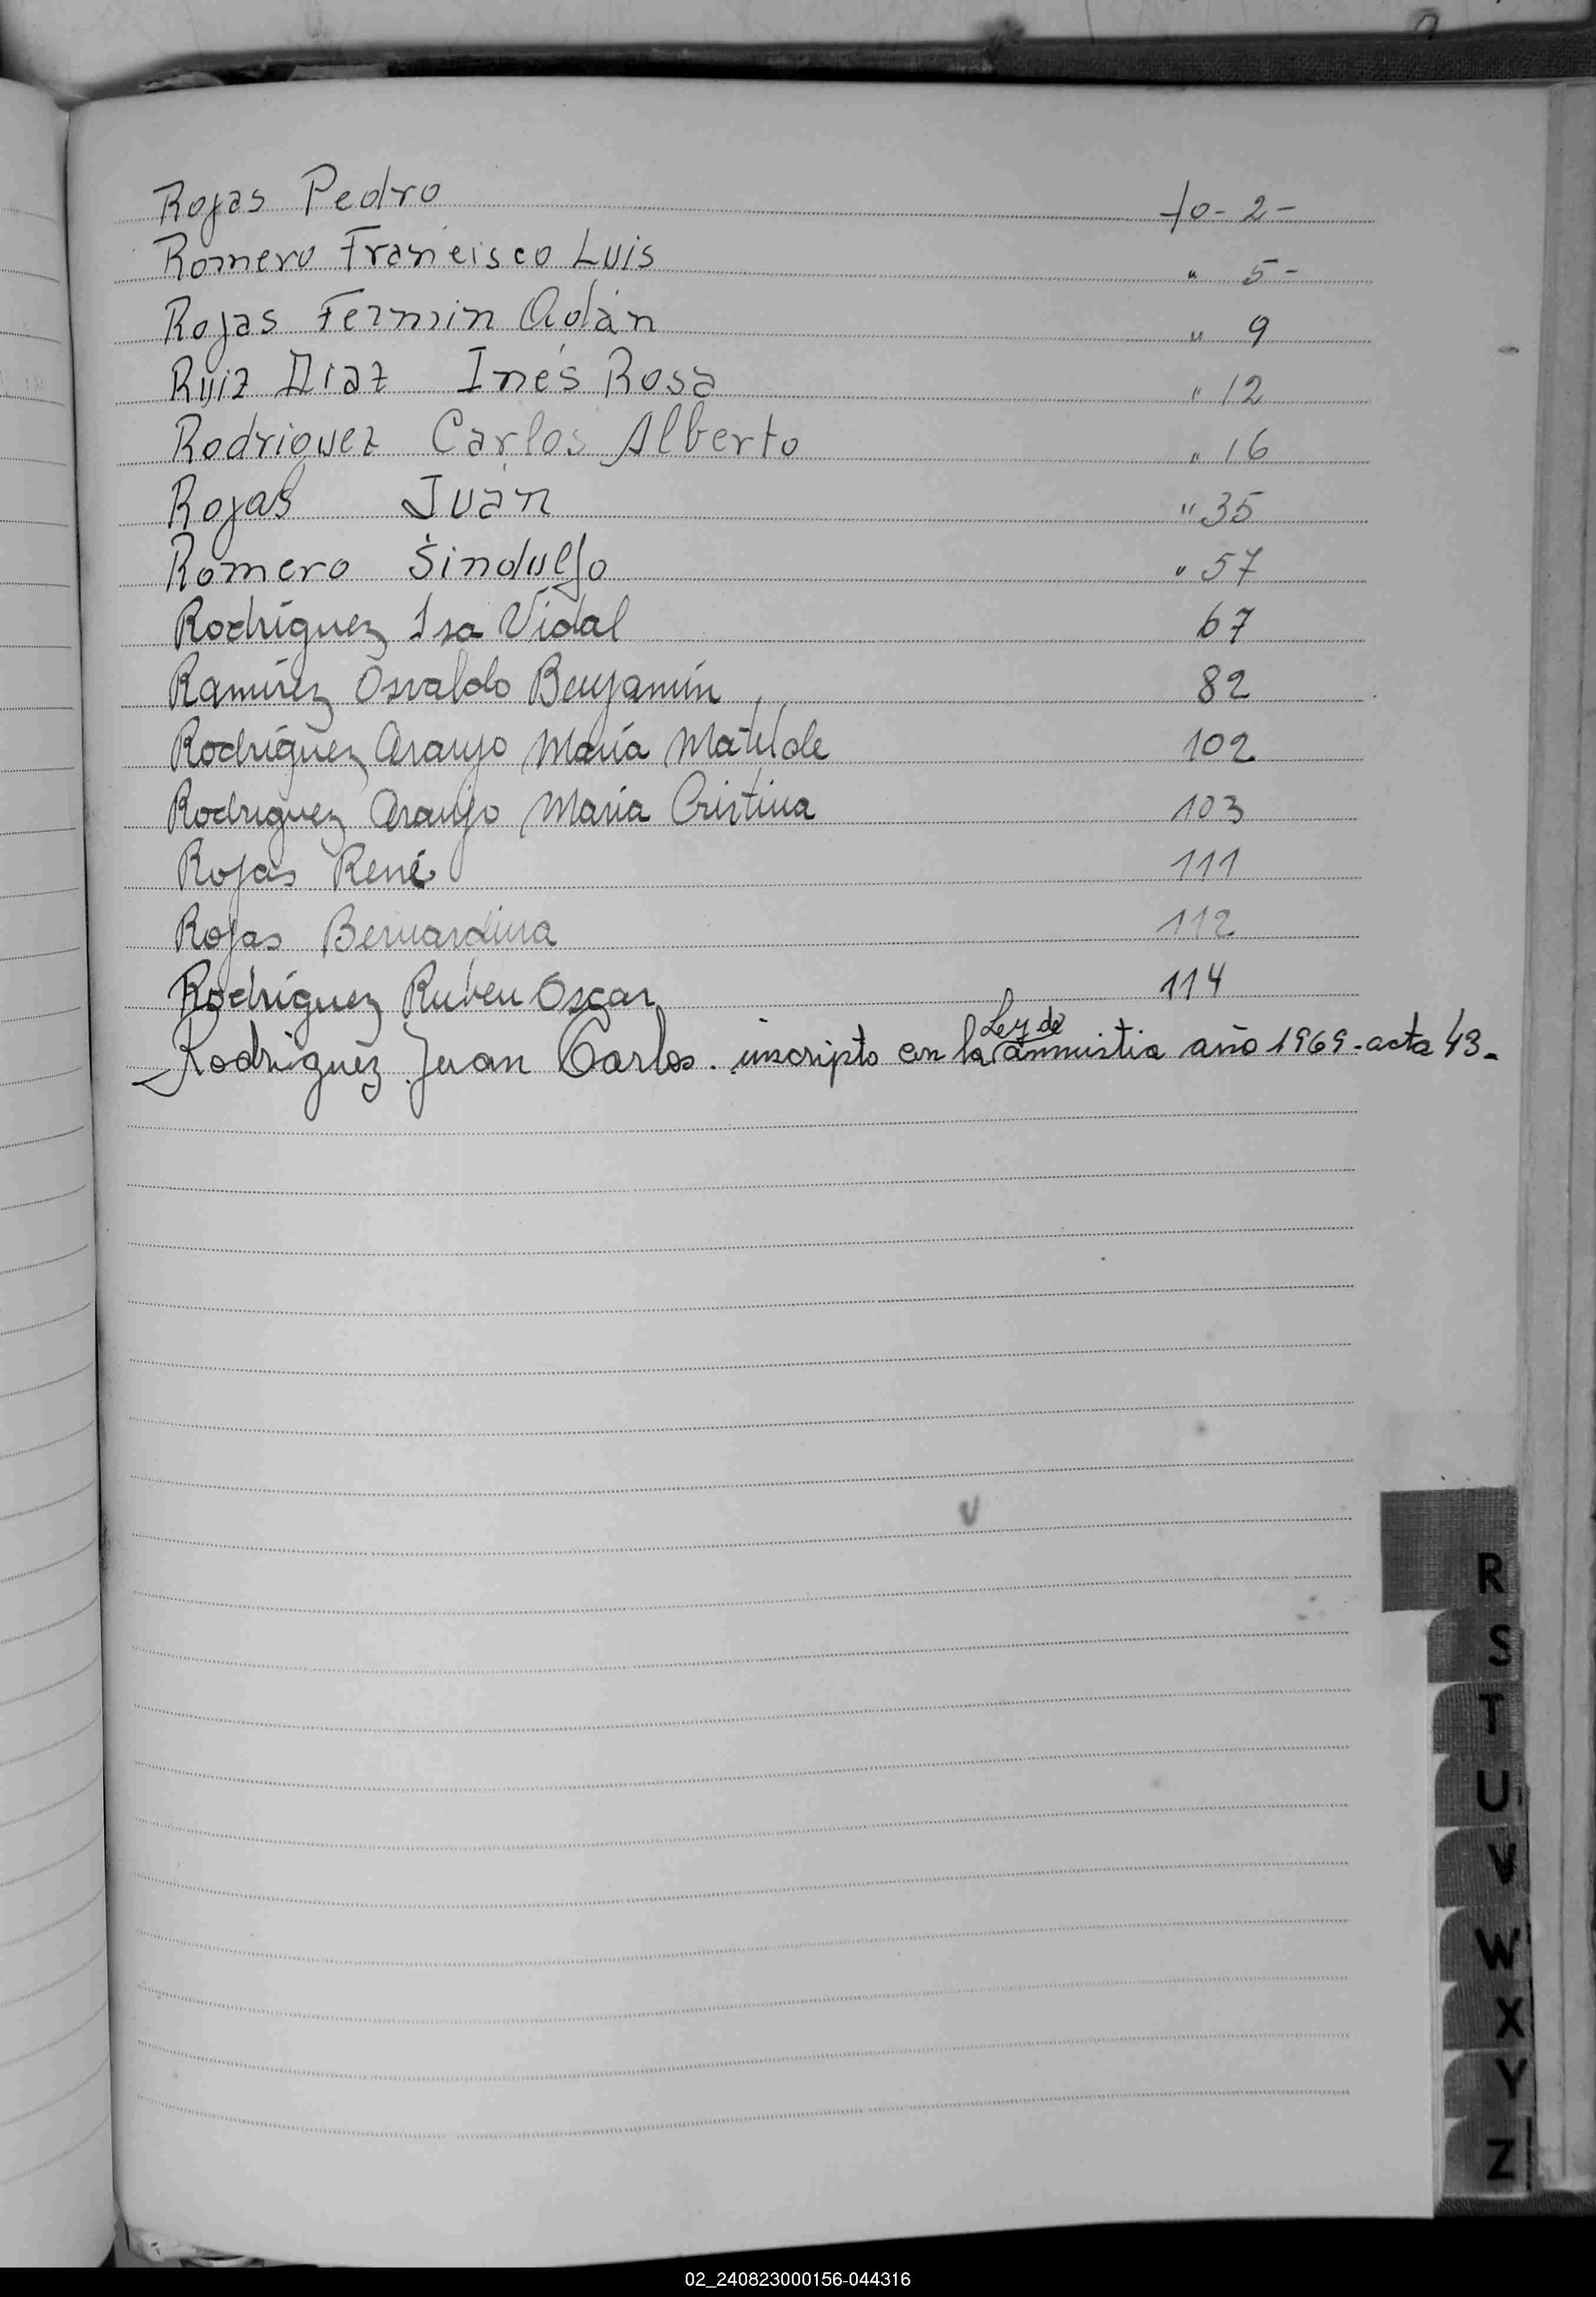 Rojas Pedro fo - 2 -
Romero Francisco Luis " 5 -
Rojas Fermin Adán " 9
Ruiz Diaz Inés Rosa " 12
Rodriguez Carlos Alberto " 16
Rojas Juan " 35
Romero Sindulfo " 57
Rodríguez Isa Vidal 67
Ramírez Osvaldo Benjamín 82
Rodríguez Araujo María Matilde 102
Rodríguez Araujo María Cristina 103
Rojas René 111
Rojas Bernardina 112
Rodríguez Ruben Oscar 114
Rodriguez Juan Carlos. inscripto en la Ley de amnistia año 1969 - acta 43 -
R
S
T
U
V
W
X
Y
Z
02_240823000156-044316